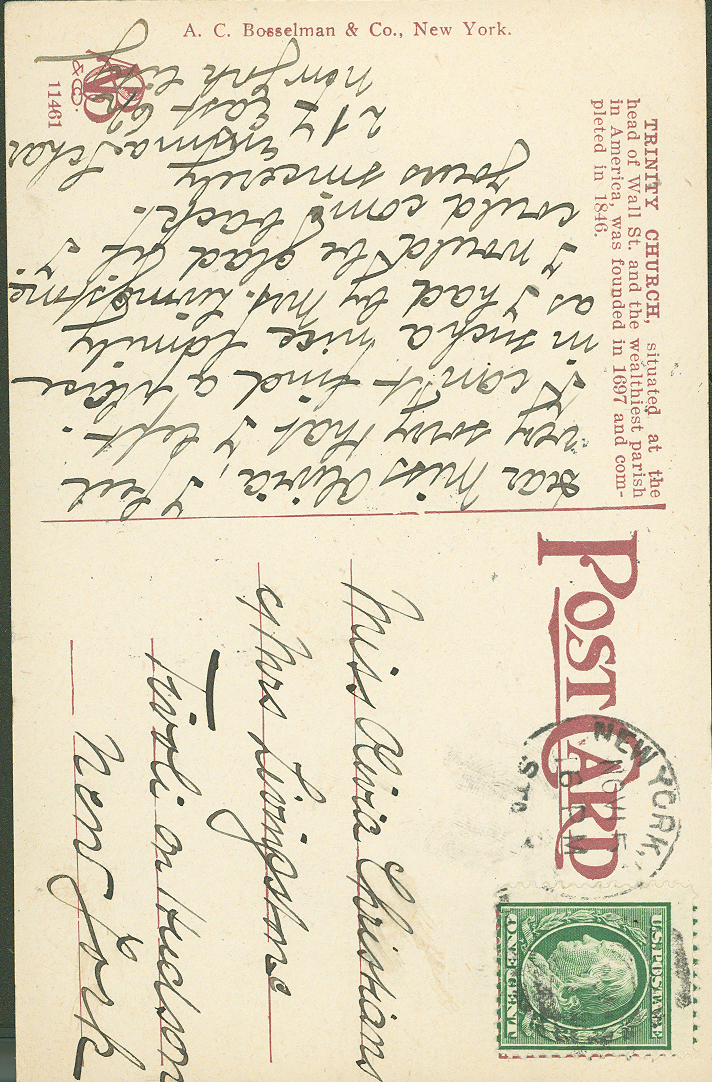 POST CARD
TRINITY CHURCH, situated at the
head of Wall St. and the wealthiest parish
in America, was founded in 1697 and com-
pleted in 1846.
A. C. Bosselman & Co., New York.
11461
Dear Miss Olivia, I feel
very sorry that I left.
I can't find a place
in such a nice family
as I had by Mrs. Livingstone
I would be glad if I
could come back.
Yours sincerely
217 East 62
New York City
NEW YORK,
NOV 15
6 PM
U.S. POSTAGE
ONE CENT
Miss Olivia Christians
c/Mrs Livingstone
Tivoli on Hudson
New York